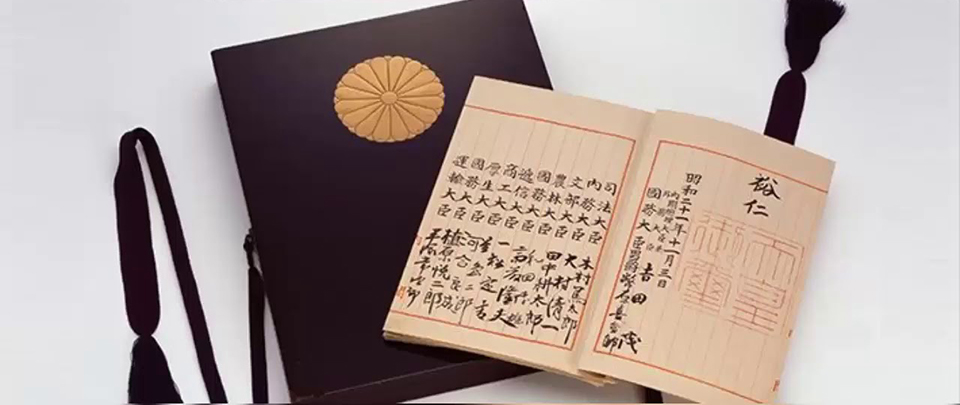 裕仁
天皇御璽
昭和二十一年十一月三日
內閣總理大臣兼
外務大臣 吉田茂
國務大臣 男爵幣原喜重郎
司法大臣 木村篤太郎
內務大臣 大村清一
文部大臣 田中耕太郎
農林大臣 和田博雄
國務大臣 斎藤隆夫
遞信大臣 一松定吉
商工大臣 星島二郎
厚生大臣 河合良成
國務大臣 植原悦二郎
運輸大臣 平塚常次郎